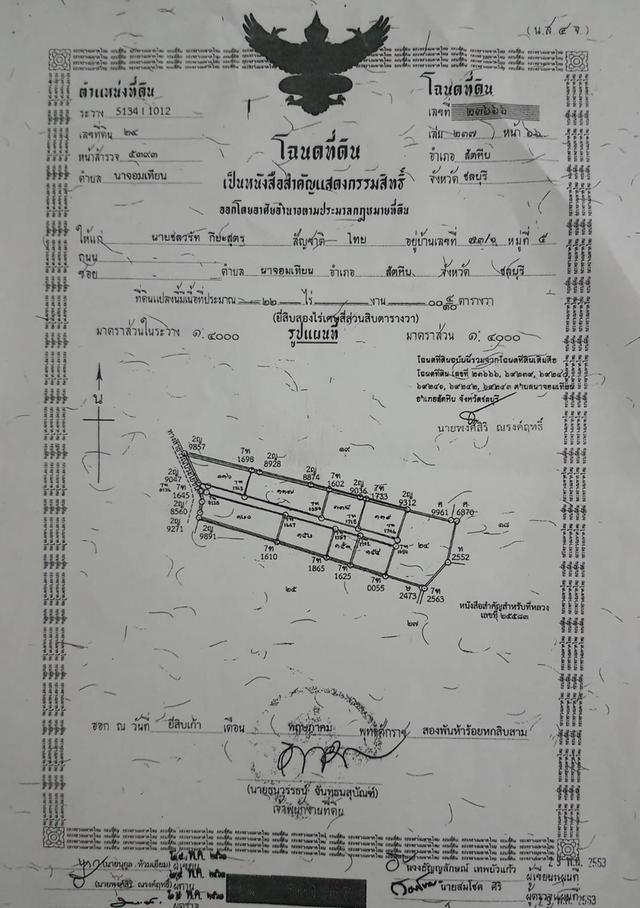 (น.ส ๔ จ.)
ตำแหน่งที่ดิน
ระวาง 5134 I 1012
เลขที่ดิน ๒๔
หน้าสำรวจ ๕๓๙๓
ตำบล นาจอมเทียน
โฉนดที่ดิน
เลขที่ ๒๓๖๖๖
เล่ม ๒๓๗ หน้า ๖๖
อำเภอ สัตหีบ
จังหวัด ชลบุรี
โฉนดที่ดิน
เป็นหนังสือสำคัญแสดงกรรมสิทธิ์
ออกโดยอาศัยอำนาจตามประมวลกฎหมายที่ดิน
ให้แก่ นายชลวรัท สัญชาติ ไทย อยู่บ้านเลขที่ หมู่ที่ ๕
ถนน
ซอย ตำบล นาจอมเทียน อำเภอ สัตหีบ จังหวัด ชลบุรี
ที่ดินแปลงนี้มีเนื้อที่ประมาณ ๒๒ ไร่ งาน ตารางวา
(ยี่สิบสองไร่เศษสี่ส่วนสิบตารางวา)
มาตราส่วนในระวาง ๑: ๔๐๐๐ รูปแผนที่ มาตราส่วน ๑: ๔๐๐๐
โฉนดที่ดินฉบับนี้รวมจากโฉนดที่ดินเดิมคือ
โฉนดที่ดิน เลขที่ ๒๓๖๖๖, ๖๙๒๓๙, ๖๙๒๔๐,
๖๙๒๔๑, ๖๙๒๔๒, ๖๙๒๔๓ ตำบลนาจอมเทียน
อำเภอสัตหีบ จังหวัดชลบุรี
นายพงศ์สิริ ณรงค์ฤทธิ์
น
2ญ
9857
7ท
1698
2ญ
8928
๑๙
2ญ
8874
7ท
1602
2ญ
9036
7ท
1733
2ญ
9312
ศ
9961
ศ
6870
๑๘
2ญ
9047
7ท
1645
2ญ
8560
2ญ
9271
2ญ
9891
7ท
1610
7ท
1865
7ท
1625
7ท
0055
ษ
2473
7ท
2563
ท
2552
๒๔
๒๕
๒๗
หนังสือสำคัญสำหรับที่หลวง
เลขที่ ๒๕๕๘๓
ออก ณ วันที่ ยี่สิบเก้า เดือน พฤษภาคม พุทธศักราช สองพันห้าร้อยหกสิบสาม
(นายธนวรรธน์ จันทนสุบัณฑ์)
เจ้าพนักงานที่ดิน
(นายพงศ์สิริ ณรงค์ฤทธิ์) ผู้ทาน
จ่างธัญญลักษณ์ เทพบัวแก้ว ผู้เขียนแผนที่
นายสมโชค ศิริ ผู้ตรวจแผนที่